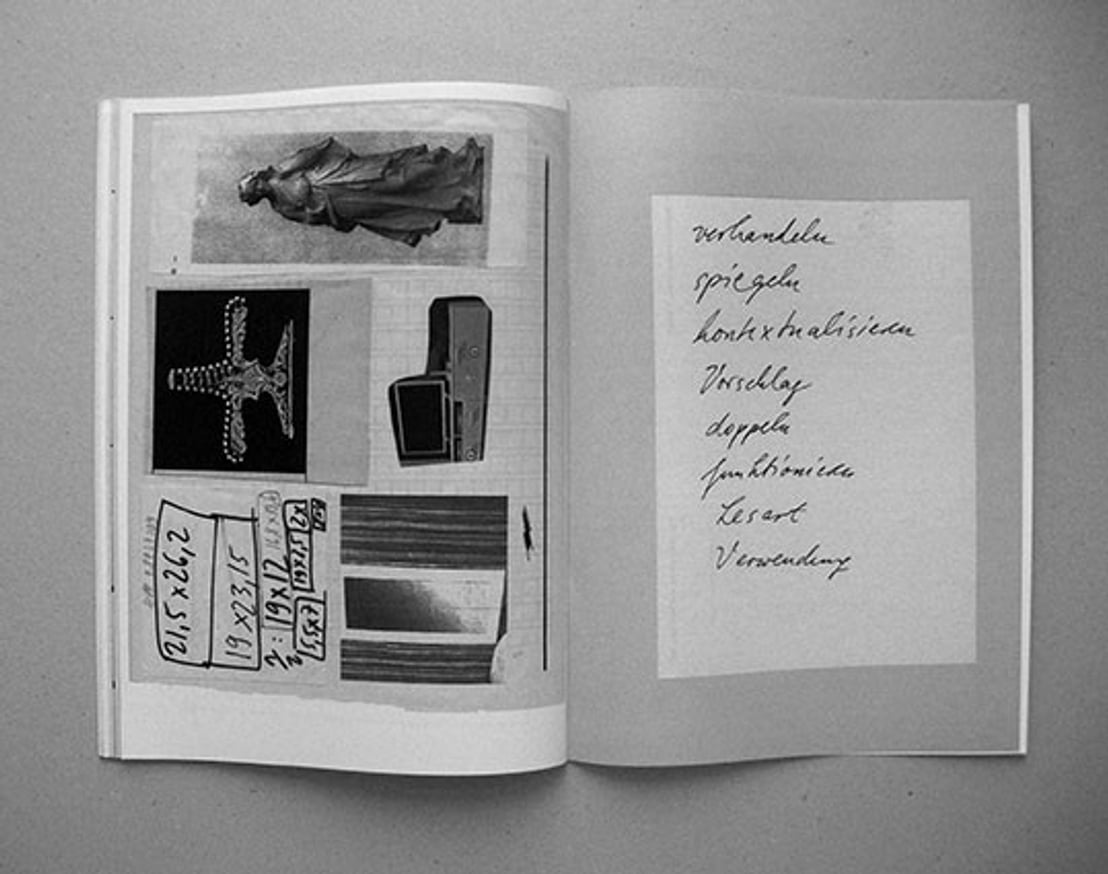 21,5 x 26,2
19 x 23,15
19 x 12
5,5 x 7
verhandeln
spiegeln
kontextualisieren
Vorschlag
doppeln
funktionieren
Lesart
Verwendung